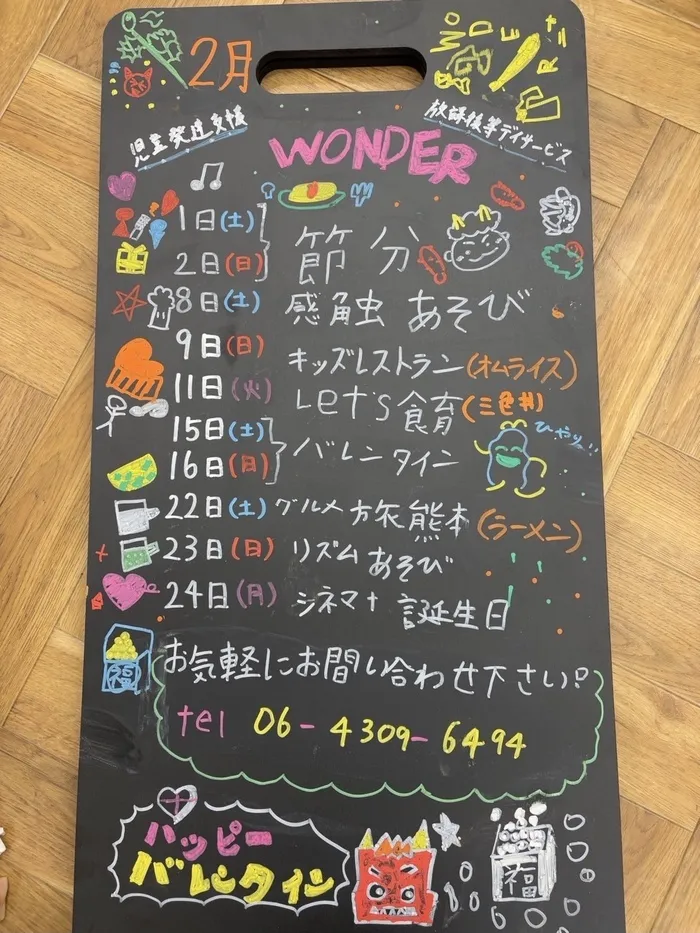 2月
児童発達支援
放課後等デイサービス
WONDER
1日(土)
2日(日)
節分
8日(土) 感触あそび
9日(日) キッズレストラン(オムライス)
11日(火) Let's食育(三色丼)
15日(土)
16日(日)
バレンタイン
ひやり!!
22日(土) グルメ旅熊本(ラーメン)
23日(日) リズムあそび
24日(月) シネマ+誕生日
福
お気軽にお問い合わせ下さい!
tel 06-4309-6494
ハッピー
バレンタイン
福